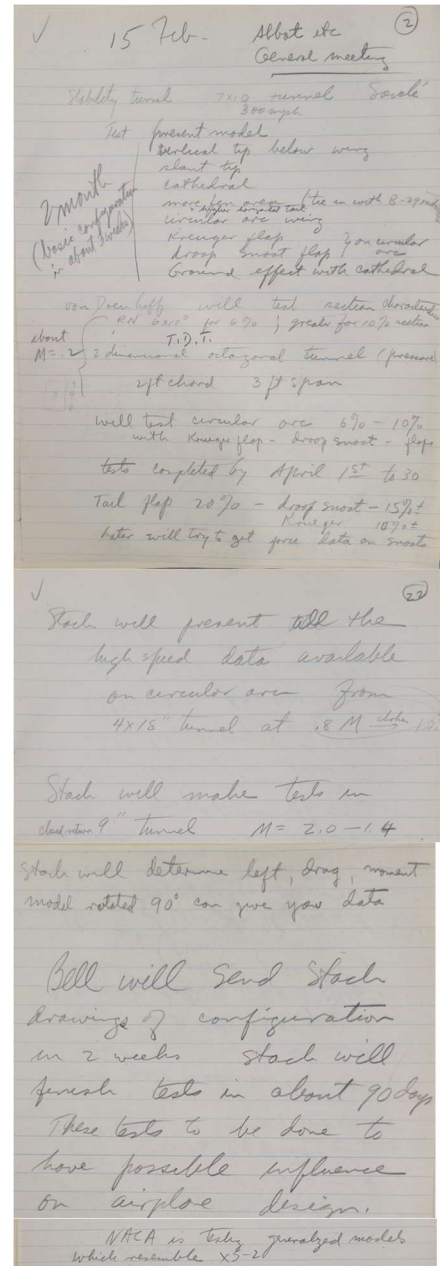 ✓ 15 Feb - Abbot etc ②
General meeting
Stability tunnel 7x10 tunnel
300 mph
Test present model
vertical tip below wing
slant tip
cathedral
more fin area (tie in with B-29
higher horizontal tail
circular arc wing
Kreuger flap } on circular
droop snoot flap } arc
Ground effect with cathedral
2 month
(basic configuration
in about 3 weeks)
von Doenhoff will test section characteristics
RN 6x10⁶ for 6% ; greater for 10% section
about T.D.T.
M=.2 2 dimensional octagonal tunnel (pressure)
2 ft chord 3 ft span
will test circular arc 6% - 10%
with Krueger flap - droop snoot - flaps
tests completed by April 1st to 30
Tail flap 20% - droop snoot - 15%±
Krueger 10%±
Later will try to get force data on snoots
✓ 22
Stack will present all the
high speed data available
on circular arc from
4x18" tunnel at .8 M
Stack will make tests in
closed return 9" tunnel M = 2.0 - 1.4
Stack will determine left, drag, moment
model rotated 90° can give yaw data
Bell will send Stack
drawings of configuration
in 2 weeks stack will
finish tests in about 90 days
These tests to be done to
have possible influence
on airplae design.
NACA is testing generalized models
which resemble XS-2